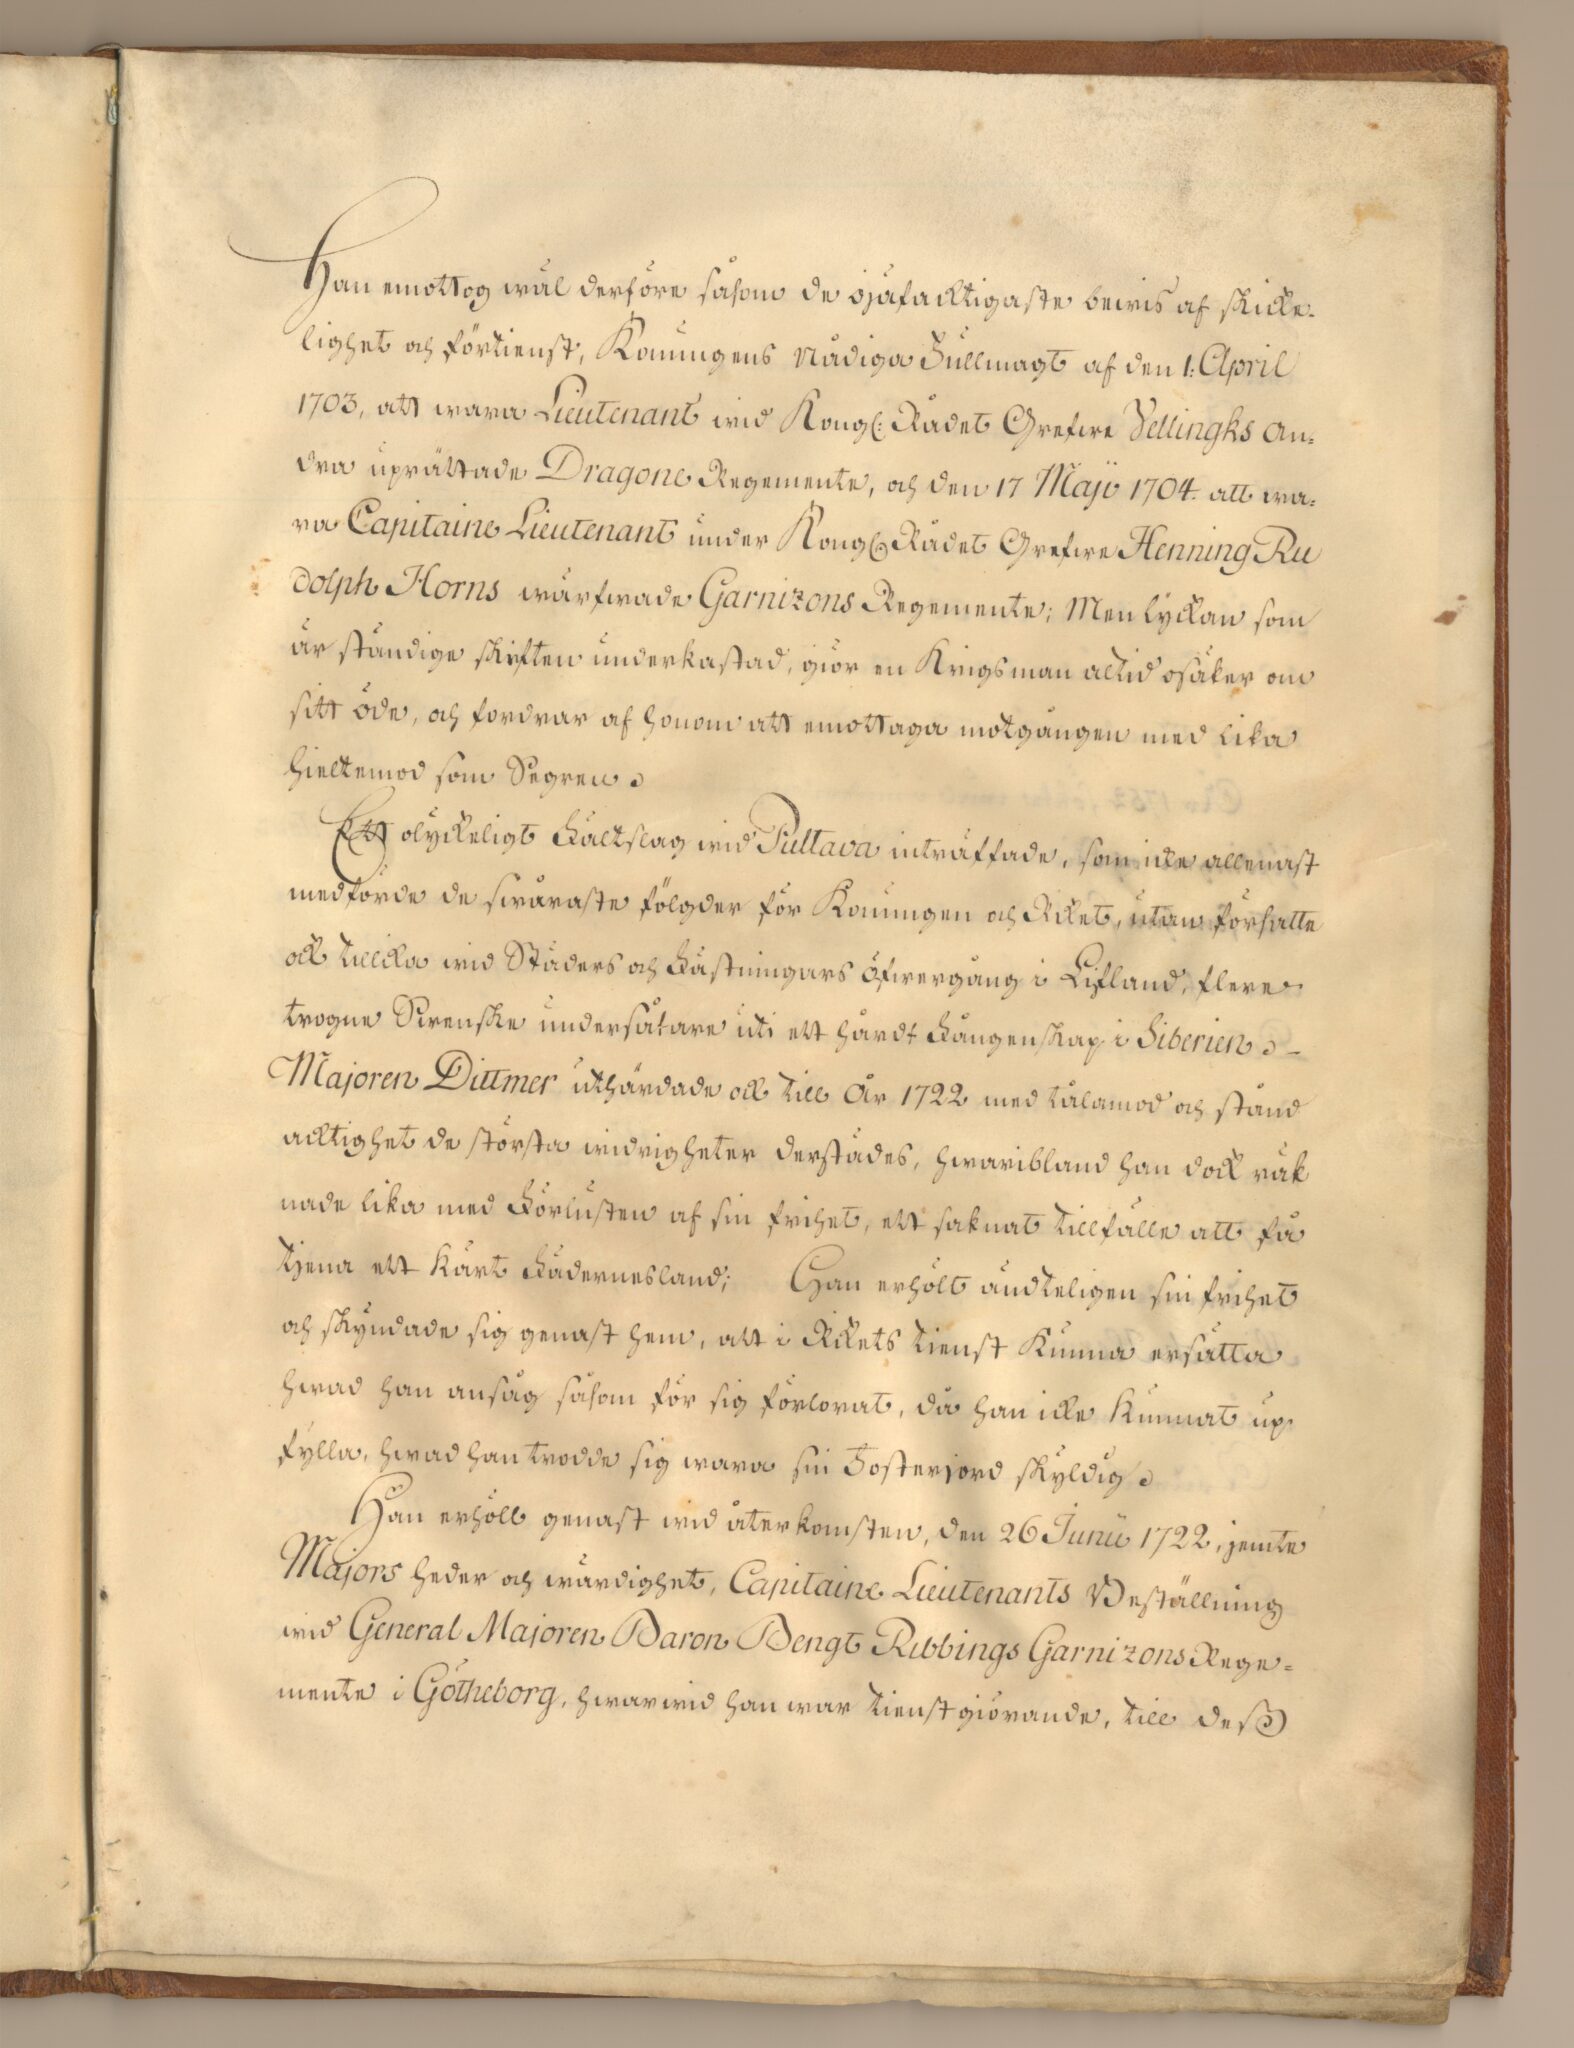 Han emottog wäl derföre såsom de ojäfacktigaste bewis af skicke-
lighet och förtienst, Konungens Nådiga Fullmagt af den 1: April
1703, att wara Lieutenant wid Kongl: Rådet Grefwe Vellingks an=
dra uprättade Dragone Regemente, och den 17 Maji 1704. att wa=
ra Capitaine Lieutenant under Kongl. Rådet Grefwe Henning Ru
dolph Horns wärfwade Garnizons Regemente; Men lyckan som
är ständige skiften underkastad, giör en Krigsman altid osäker om
sitt öde, och fordrar af honom att emottaga motgången med lika
hieltemod som Segren.
Ett olyckeligt Fältslag wid Pultava inträffade, som icke allenast
medförde de swåraste fölgder för Konungen och Riket, utan försatte
ock tillika wid Städers och Fästningars öfwergång i Lifland, flere
trogne Swenske undersåtare uti ett hårdt Fångenskap i Siberien.
Majoren Dittmer uthärdade ock till år 1722 med tålamod och stånd
acktighet de största widrigheter derstädes, hwaribland han dock räk
nade lika med Förlusten af sin frihet, ett saknat tillfälle att få
tjena ett Kärt Fädernesland; Han erhölt ändteligen sin frihet
och skyndade sig genast hem, att i Rikets tienst Kunna ersätta
hwad han ansåg såsom för sig förlorat, då han icke Kunnat up
fylla, hwad han trodde sig wara sin Fosterjord skyldig.
Han erhöllt genast wid återkomsten, den 26 Junii 1722, jemte
Majors heder och wärdighet, Capitaine Lieutenants Beställning
wid General Majoren Baron Bengt Ribbings Garnizons Rege=
mente i Götheborg, hwarwid han war tienstgiörande, till dess